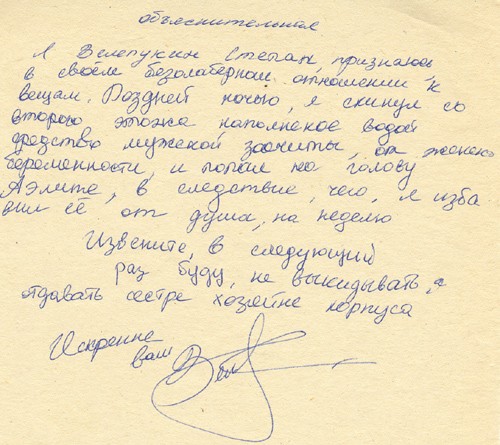 объяснительная
Я Велепукин Степан, признаюсь
в своём безолаберном отношении к
вещам. Поздней ночью, я скинул со
второго этожа наполненое водой
средство мужской защиты, от женской
беременности, и попал на голову
Аэлите, в следствие, чего, я изба
вил её от душа, на неделю
Извените, в следующий
раз буду, не выкидывать, а
отдавать сестре хозяйке корпуса
Искренне
ваш